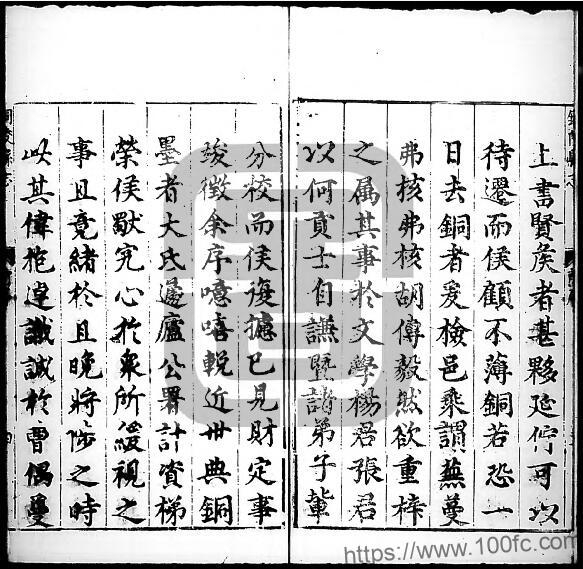 上書賢矦者甚夥延佇可以
待遷而侯顧不薄銅若恐一
日去銅者爰檢邑乘謂蕪蔓
弗核弗核胡傳毅然欲重梓
之属其事於文學楊君張君
以何貢士自謙暨諸弟子輩
分校而侯復攄己見財定事
竣徵余序噫嘻輓近世典銅
墨者大氐遽廬公署計資梯
榮侯獨究心於衆所緩視之
事且竟緒於且晚將陟之時
以其偉抱達識誠於曹偶
https://www.100fc.com